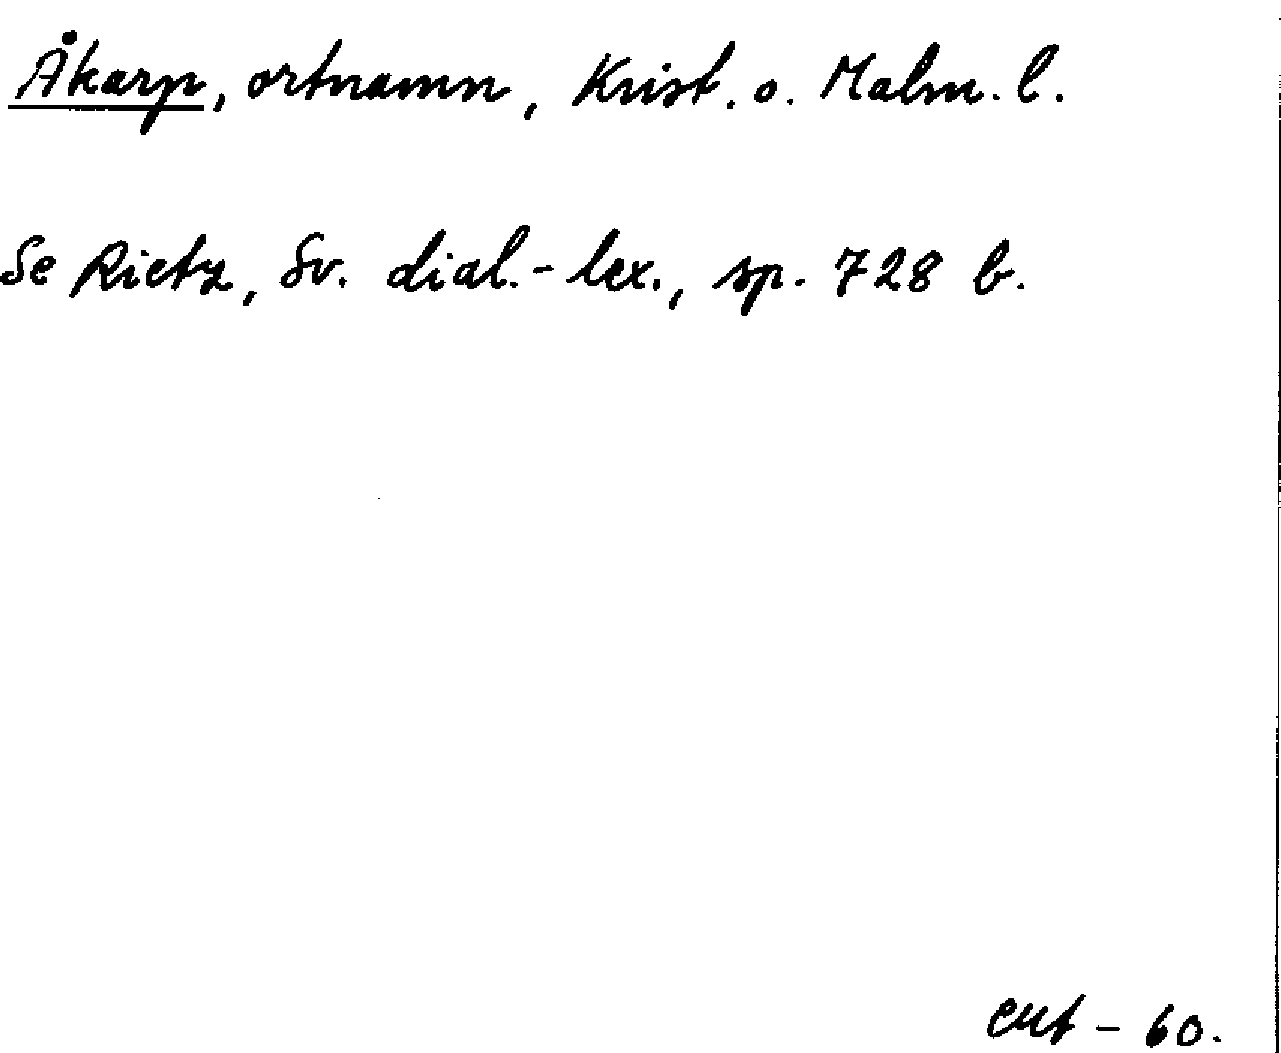 Åkarp, ortnamn, Krist. o. Malm. l.
Se Rietz, Sv. dial.-lex., sp. 728 b.
- 60.